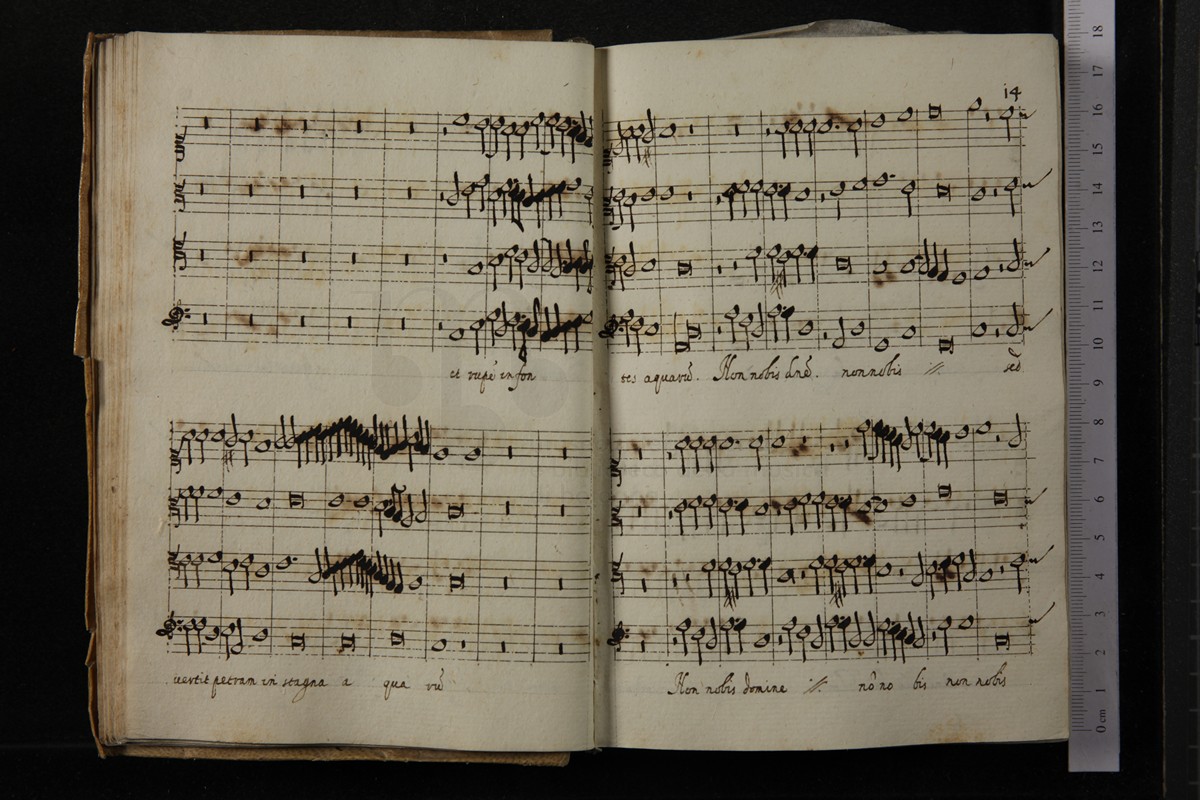 14
et rupē in fon
tes aquarū. Non nobis dnē. non nobis //. sed
vertit petram in stagna a qua rū
Non nobis domine //. nō no bis non nobis
18
17
16
15
14
13
12
11
10
9
8
7
6
5
4
3
2
1
0 cm